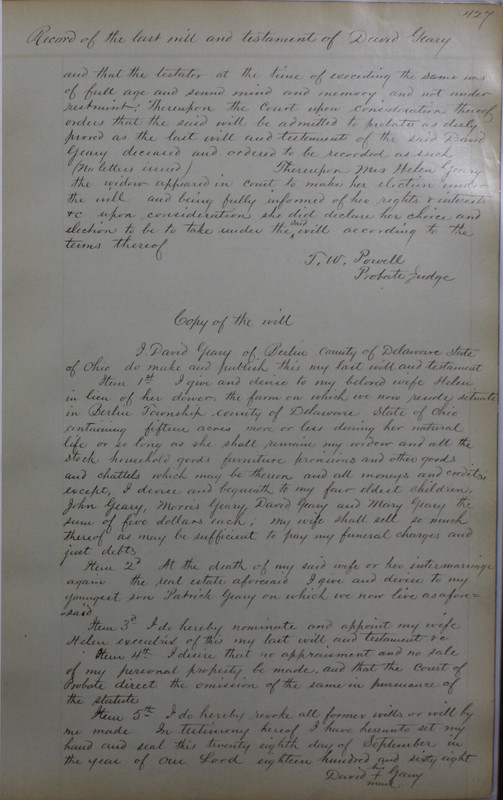 427
Record of the last will and testament of David Geary
and that the testator at the time of executing the same was
of full age and sound mind and memory and not under
restraint; Thereupon the Court upon consideration thereof
orders that the said will be admitted to probate as duly
proved as the last will and testament of the said David
Geary deceased and ordered to be recorded as such
(No letters issued) Thereupon Mrs Helen Geary
the widow appeared in court to make her election under
the will and being fully informed of her rights & interests
&c upon consideration she did declare her choice and
election to be to take under the said will according to the
terms thereof
T. W. Powell
Probate Judge
Copy of the will
I David Geary of Berlin County of Delaware State
of Ohio do make and publish this my last will and testament
Item 1st I give and devise to my beloved wife Helen
in lieu of her dower the farm on which we now reside situate
in Berlin Township county of Delaware State of Ohio
containing fifteen acres more or less during her natural
life or so long as she shall remain my widow and all the
stock household goods furniture provisions and other goods
and chattels which may be thereon and all moneys and credits,
except, I devise and bequeath to my four oldest children,
John Geary, Morris Geary, David Geary and Mary Geary the
sum of five dollars each; my wife shall sell so much
thereof as may be sufficient to pay my funeral charges and
just debts
Item 2d At the death of my said wife or her intermarriage
again the real estate aforesaid I give and devise to my
youngest son Patrick Geary on which we now live as afore=
=said
Item 3d I do hereby nominate and appoint my wife
Helen executrix of this my last will and testament &c
Item 4th I desire that no appraisment and no sale
of my personal property be made, and that the Court of
Probate direct the omission of the same in pursuance of
the statute
Item 5th I do hereby revoke all former wills or will by
me made In testimony hereof I have hereunto set my
hand and seal this twenty eighth day of September in
the year of our Lord eighteen hundred and sixty eight
David Geary
mark